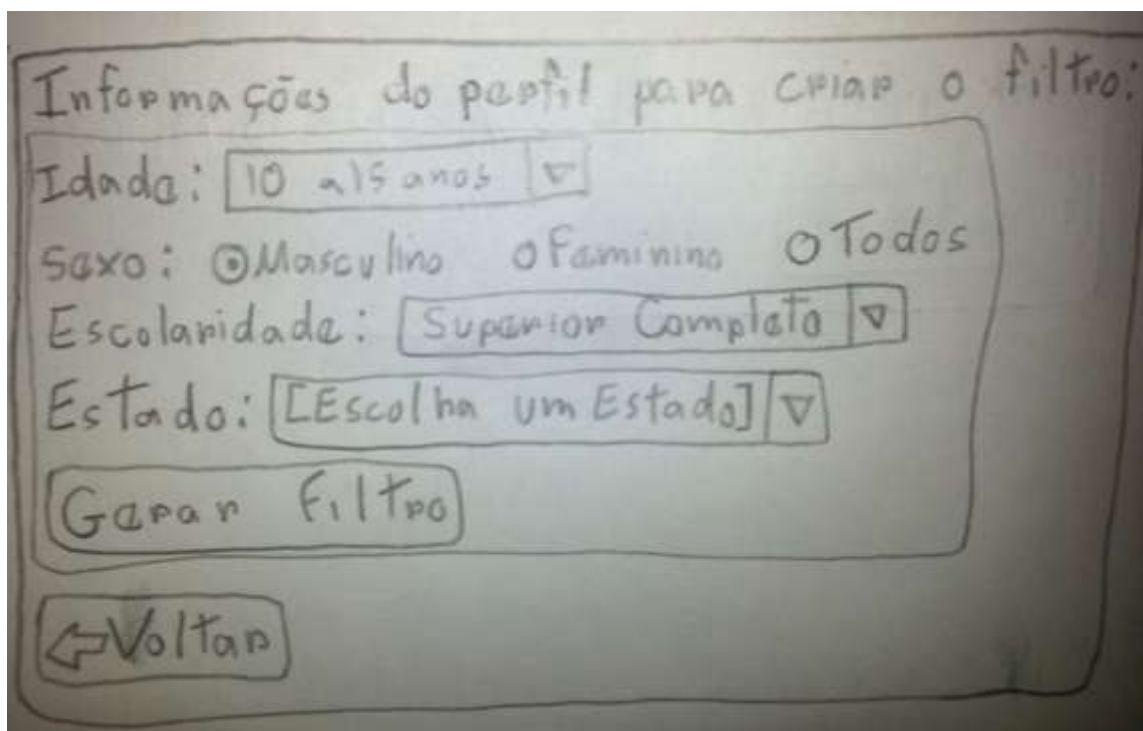 Informações do perfil para criar o filtro:
Idade: 10 a 15 anos
Sexo: Masculino Feminino Todos
Escolaridade: Superior Completo
Estado: [Escolha um Estado]
Gerar Filtro
Voltar